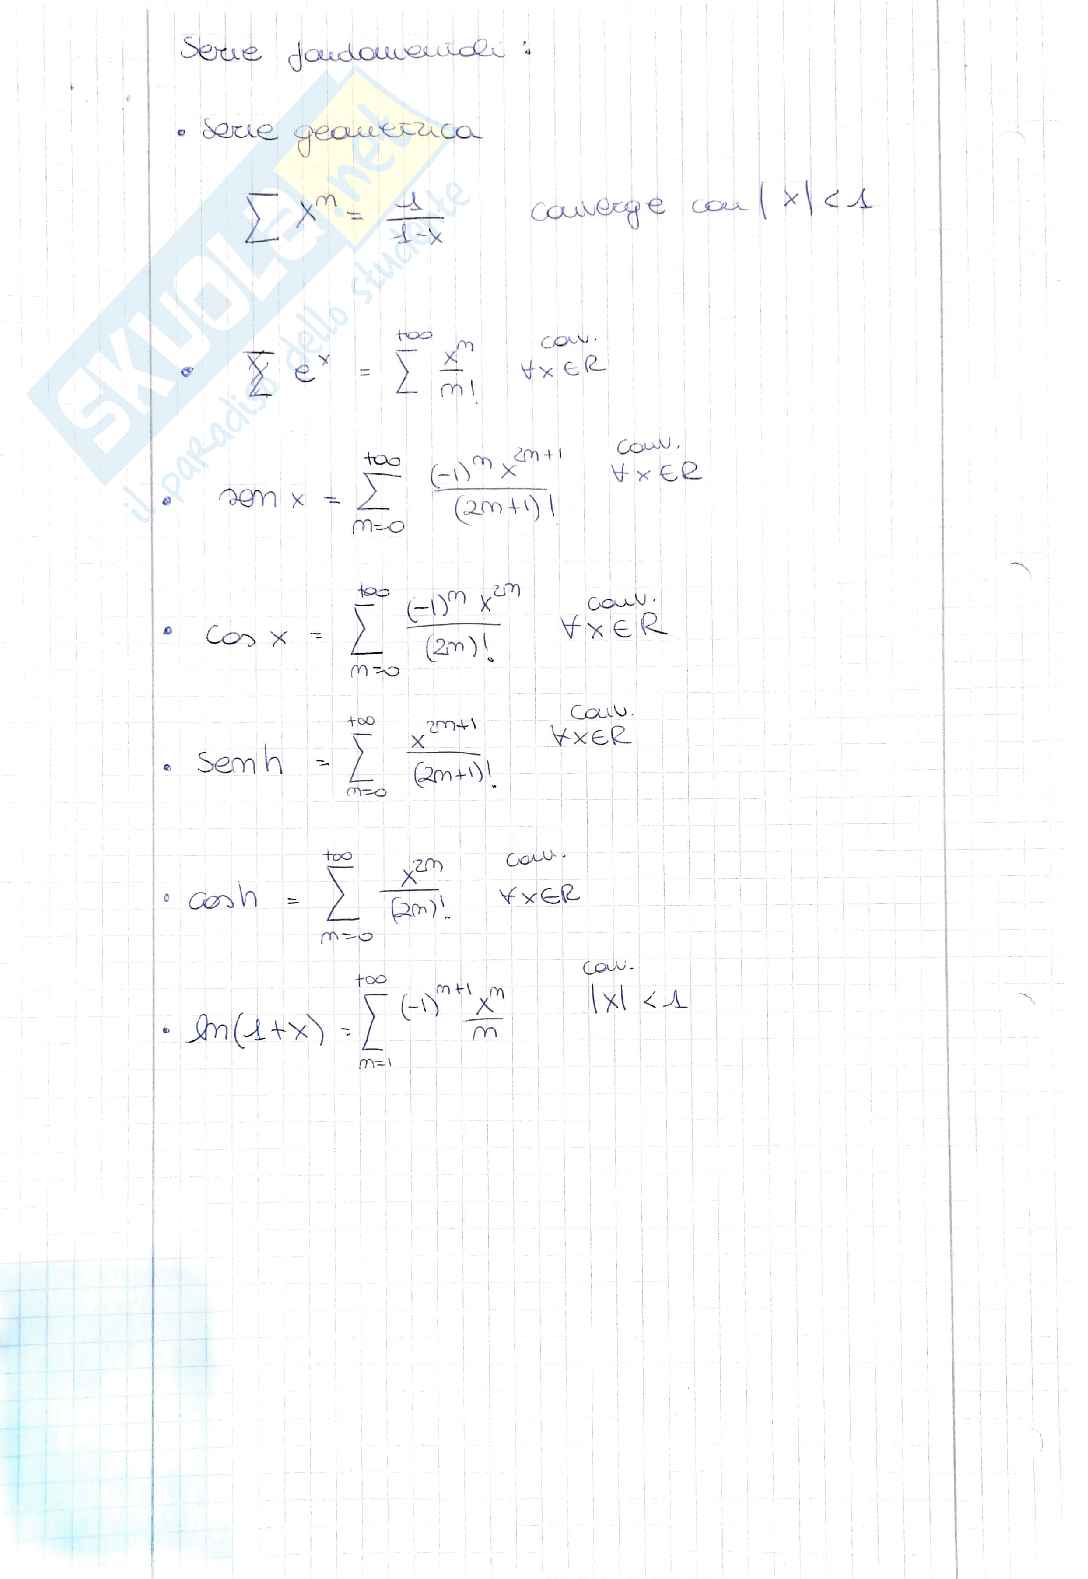 Serie fondamentali:
• Serie geometrica
∑ x^n = 1/(1-x) converge con |x| < 1
• e^x = ∑^{+∞} x^n/n! conv. ∀x∈R
• sen x = ∑_{n=0}^{+∞} (-1)^n x^{2n+1}/(2n+1)! conv. ∀x∈R
• cos x = ∑_{n=0}^{+∞} (-1)^n x^{2n}/(2n)! conv. ∀x∈R
• senh = ∑_{n=0}^{+∞} x^{2n+1}/(2n+1)! conv. ∀x∈R
• cosh = ∑_{n=0}^{+∞} x^{2n}/(2n)! conv. ∀x∈R
• ln(1+x) = ∑_{n=1}^{+∞} (-1)^{n+1} x^n/n conv. |x| < 1
SKUOLA.net
il paradiso dello studente